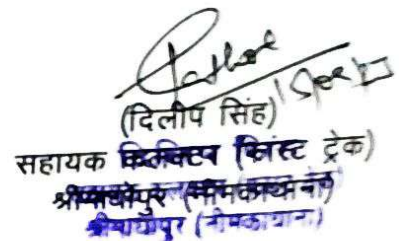 (दिलीप सिंह)
सहायक कलेक्टर (फास्ट ट्रेक)
श्रीमाधोपुर (नीमकाथाना)
श्रीमाधोपुर (नीमकाथाना)